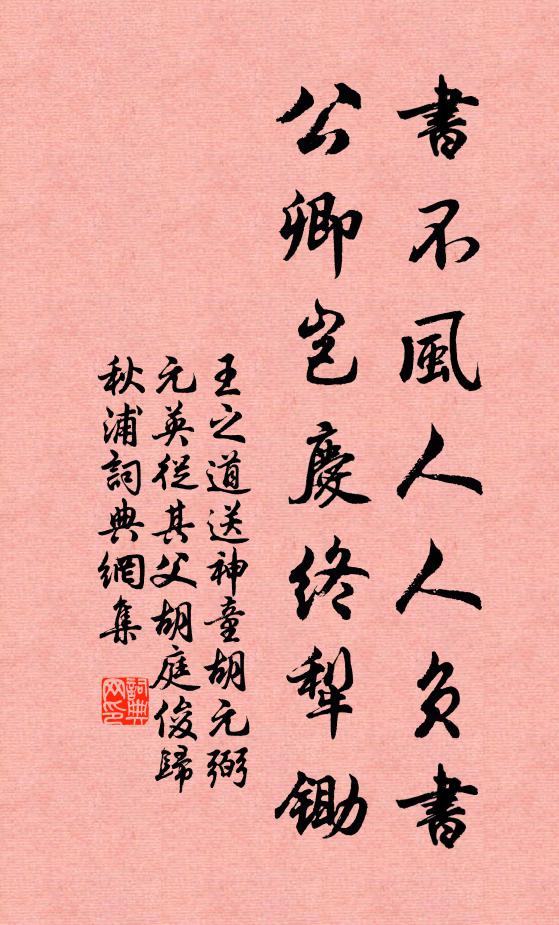 書不風人人負書
公卿豈慶終犁鋤
王之道送神童胡元弼
元英從其父胡庭俊歸
秋浦詞典網集
詞典
网印